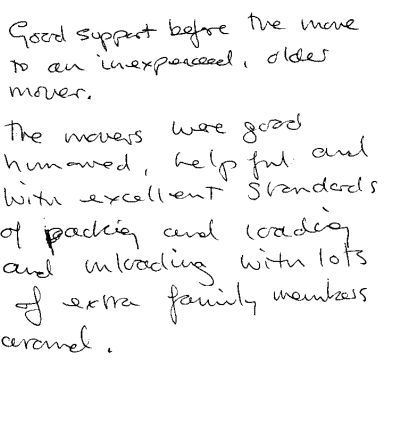 Good support before the move
to an inexperienced, older
mover.
The movers were good
humoured, helpful and
with excellent standards
of packing and loading
and unloading with lots
of extra family members
around.